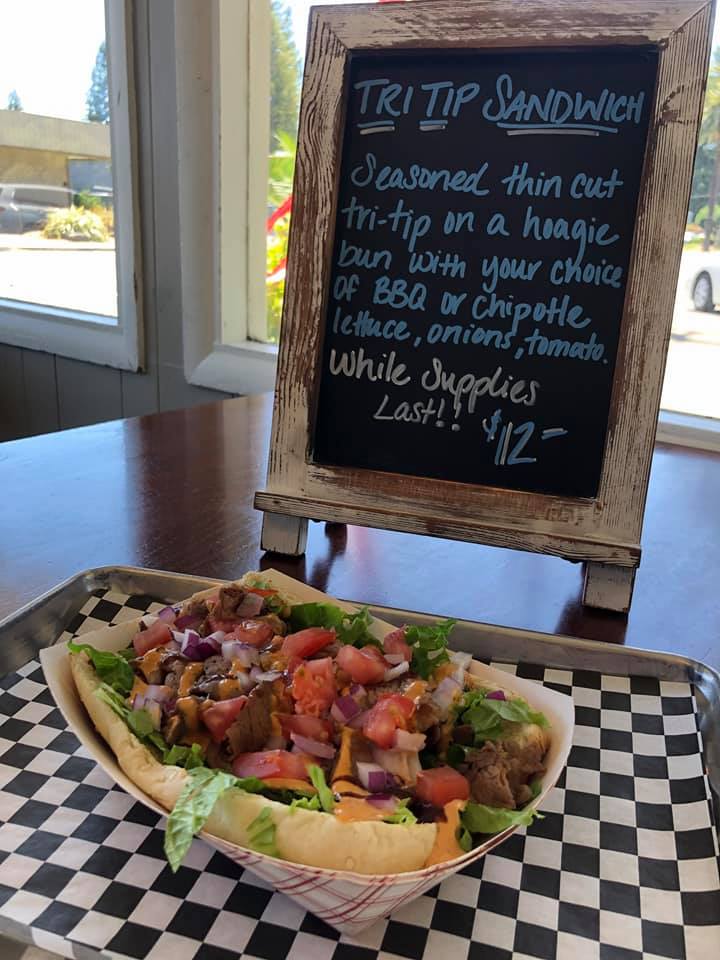 TRI TIP SANDWICH
Seasoned thin cut
tri-tip on a hoagie
bun with your choice
OF BBQ or Chipotle
lettuce, onions, tomato.
While Supplies
Last!! $12-